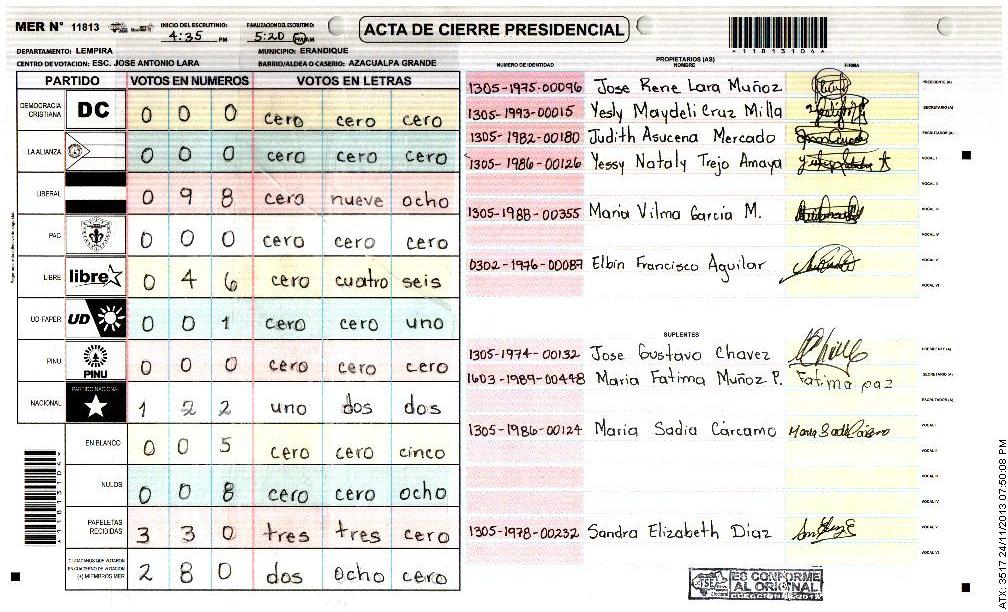 MER N° 11813
INICIO DEL ESCRUTINIO: 4:35 PM
FINALIZACION DEL ESCRUTINIO: 5:20 PM AM
ACTA DE CIERRE PRESIDENCIAL
11813104
DEPARTAMENTO: LEMPIRA
MUNICIPIO: ERANDIQUE
CENTRO DE VOTACION: ESC. JOSE ANTONIO LARA
BARRIO/ALDEA O CASERIO: AZACUALPA GRANDE
PARTIDO VOTOS EN NUMEROS VOTOS EN LETRAS
DEMOCRACIA CRISTIANA DC 0 0 0 cero cero cero
LA ALIANZA 0 0 0 cero cero cero
LIBERAL 0 9 8 cero nueve ocho
PAC 0 0 0 cero cero cero
LIBRE libre 0 4 6 cero cuatro seis
UD-FAPER UD 0 0 1 cero cero uno
PINU PINU 0 0 0 cero cero cero
NACIONAL PARTIDO NACIONAL 1 2 2 uno dos dos
EN BLANCO 0 0 5 cero cero cinco
NULOS 0 0 8 cero cero ocho
PAPELETAS RECIBIDAS 3 3 0 tres tres cero
CIUDADANOS QUE VOTARON EN CUADERNO DE VOTACION (+) MIEMBROS MER 2 8 0 dos ocho cero
PROPIETARIOS (AS)
NUMERO DE IDENTIDAD NOMBRE FIRMA
1305-1975-00096 Jose Rene Lara Muñoz PRESIDENTE (A)
1305-1993-00015 Yesly Maydeli Cruz Milla SECRETARIO (A)
1305-1982-00180 Judith Asucena Mercado ESCRUTADOR (A)
1305-1986-00126 Yessy Nataly Trejo Amaya VOCAL I
VOCAL II
1305-1988-00355 Maria Vilma Garcia M. VOCAL III
VOCAL IV
0302-1976-00087 Elbin Francisco Aguilar VOCAL V
VOCAL VI
SUPLENTES
1305-1974-00132 Jose Gustavo Chavez PRESIDENTE (A)
1603-1989-00448 Maria Fatima Muñoz P. Fatima paz SECRETARIO (A)
ESCRUTADOR (A)
1305-1986-00124 Maria Sadia Cárcamo VOCAL I
VOCAL II
VOCAL III
VOCAL IV
1305-1978-00232 Sandra Elizabeth Díaz VOCAL V
VOCAL VI
TSE ES CONFORME AL ORIGINAL
ATX-3517 24/11/2013 07:50:08 PM